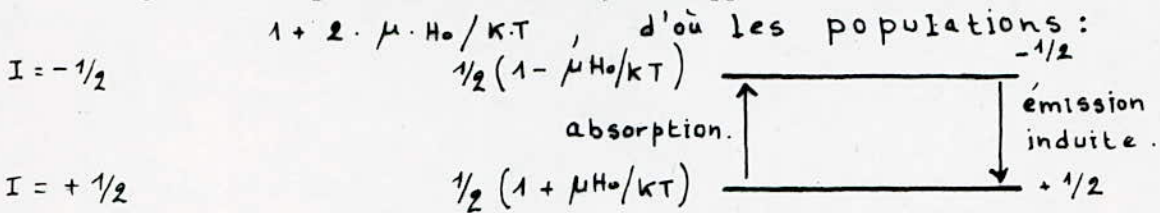 1 + 2 . μ . H₀ / K.T , d'où les populations :
I = - 1/2 1/2 (1 - μH₀/KT) - 1/2
absorption. émission
induite .
I = + 1/2 1/2 (1 + μH₀/KT) + 1/2